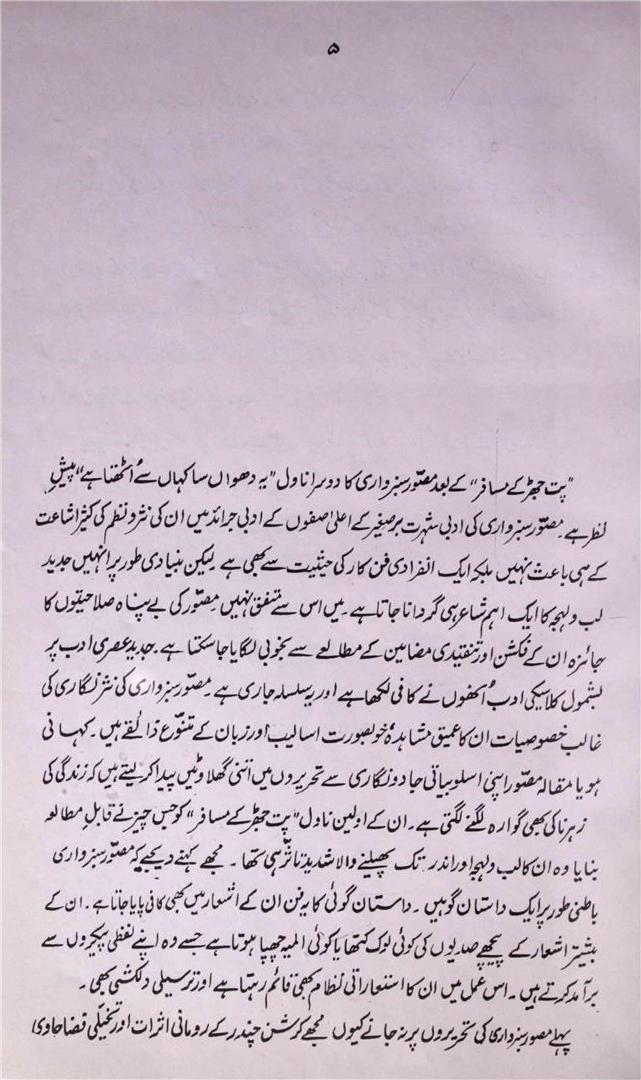 ۵
"پت جھڑ کے مسافر" کے بعد مصوّر سبزواری کا دوسرا ناول "یہ دھواں سا کہاں سے اُٹھتا ہے" پیشِ
نظر ہے۔ مصوّر سبزواری کی ادبی شہرت برصغیر کے اعلیٰ صفوں کے ادبی جرائد میں ان کی نثر و نظم کی کثیر اشاعت
کے ہی باعث نہیں بلکہ ایک انفرادی فن کار کی حیثیت سے بھی ہے لیکن بنیادی طور پر انہیں جدید
لب و لہجہ کا ایک اہم شاعر ہی گردانا جاتا ہے۔ میں اس سے متفق نہیں مصوّر کی بے پناہ صلاحیتوں کا
جائزہ ان کے فکشن اور تنقیدی مضامین کے مطالعے سے بخوبی لگایا جا سکتا ہے۔ جدید عصری ادب پر
بشمول کلاسیکی ادب اُنھوں نے کافی لکھا ہے اور یہ سلسلہ جاری ہے۔ مصوّر سبزواری کی نثر نگاری کی
غالب خصوصیات ان کا عمیق مشاہدہ خوبصورت اسالیب اور زبان کے متنوّع ذائقے ہیں۔ کہانی
ہو یا مقالہ مصوّر اپنی اسلوبیاتی جادو نگاری سے تحریروں میں اتنی گھلاوٹیں پیدا کر لیتے ہیں کہ زندگی کی
زہرناکی بھی گوارہ لگنے لگتی ہے۔ ان کے اولین ناول "پت جھڑ کے مسافر" کو جس چیز نے قابلِ مطالعہ
بنایا وہ ان کا لب و لہجہ اور اندر تک پھیلنے والا شدید تاثّر ہی تھا۔ مجھے کہنے دیجیے کہ مصوّر سبزواری
باطنی طور پر ایک داستان گو ہیں۔ داستان گوئی کا یہ فن ان کے اشعار میں بھی کافی پایا جاتا ہے۔ ان کے
بیشتر اشعار کے پیچھے صدیوں کی کوئی لوک کتھا یا کوئی المیہ چھپا ہوتا ہے جسے وہ اپنے لفظی پیکروں سے
برآمد کرتے ہیں۔ اس عمل میں ان کا استعاراتی نظام بھی قائم رہتا ہے اور ترسیلی دلکشی بھی۔
پہلے مصور سبزواری کی تحریروں پر نہ جانے کیوں مجھے کرشن چندر کے رومانی اثرات اور تخیّلی فضا حاوی